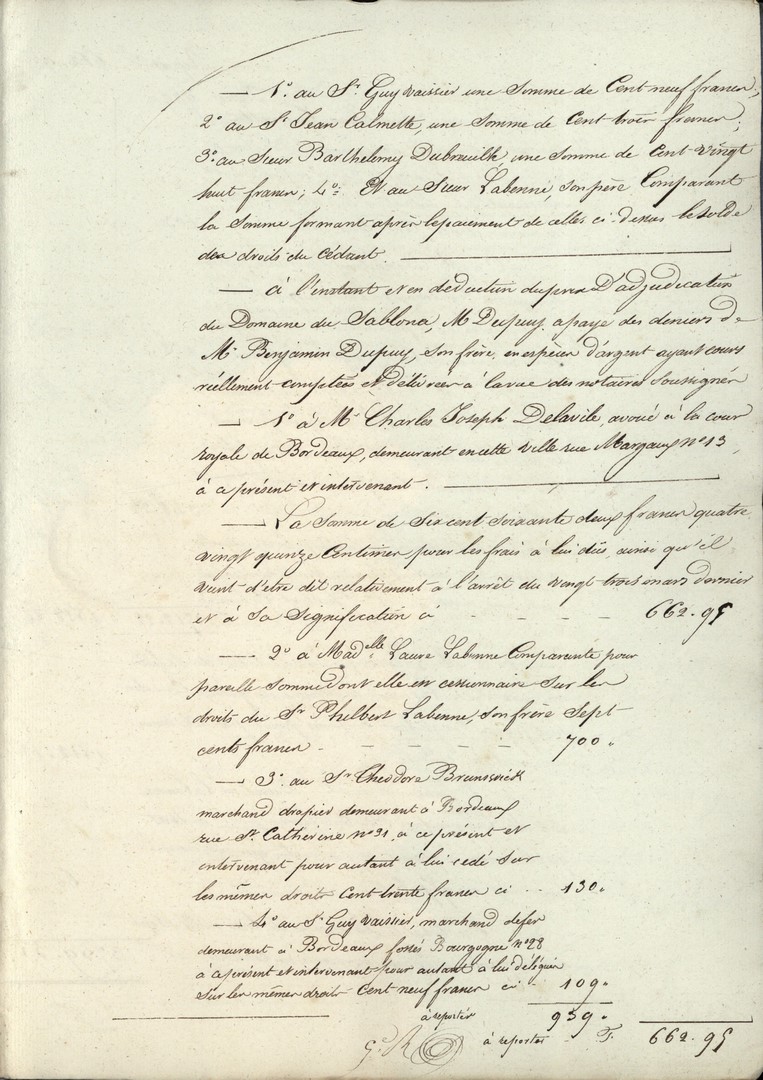 — 1° au Sr. Guy Vaissier une Somme de Cent neuf francs,
2° au Sr. Jean Calmette, une Somme de Cent trois francs;
3° au Sieur Barthelemy Dubreuilh, une Somme de Cent vingt
huit francs; 4°: Et au Sieur Labenne, son père Comparant
la Somme formant après le paiement de celles ci-dessus le solde
des droits du Cédant.
— à l'instant et en déduction du prix D'adjudication
du Domaine du Sablona, Mr Dupuy a payé des deniers de
Mr. Benjamin Dupuy, son frère, en espèces d'argent ayant cours
réellement comptées et délivrées à la vue des notaires soussignés
— 1° à Mr. Charles Joseph Delavile, avoué à la cour
royale de Bordeaux, demeurant en cette ville rue Margaux n° 13,
à ce présent et intervenant.
— La Somme de Six cent soixante deux francs quatre
vingt quinze Centimes pour les frais à lui dûs, ainsi qu'il
vient d'être dit relativement à l'arrêt du vingt trois mars dernier
et à sa signification ci - - - - 662.95
— 2° à Madelle. Laure Labenne Comparante pour
pareille Somme dont elle est cessionnaire sur les
droits du Sr Philbert Labenne, son frère Sept
cents francs - - - - - 700.
— 3°. au Sr. Théodore Brunswick
marchand drapier demeurant à Bordeaux
rue St. Catherine n° 91, à ce présent et
intervenant pour autant à lui cédé sur
les mêmes droits Cent trente francs ci - - 130.
— 4° au Sr. Guy Vaissier, marchand de fer
demeurant à Bordeaux fossés Bourgogne n° 28
à ce présent et intervenant pour autant à lui délégué
sur les mêmes droits Cent neuf francs ci - 109.
à reporter 939.
à reporter - F. 662.95